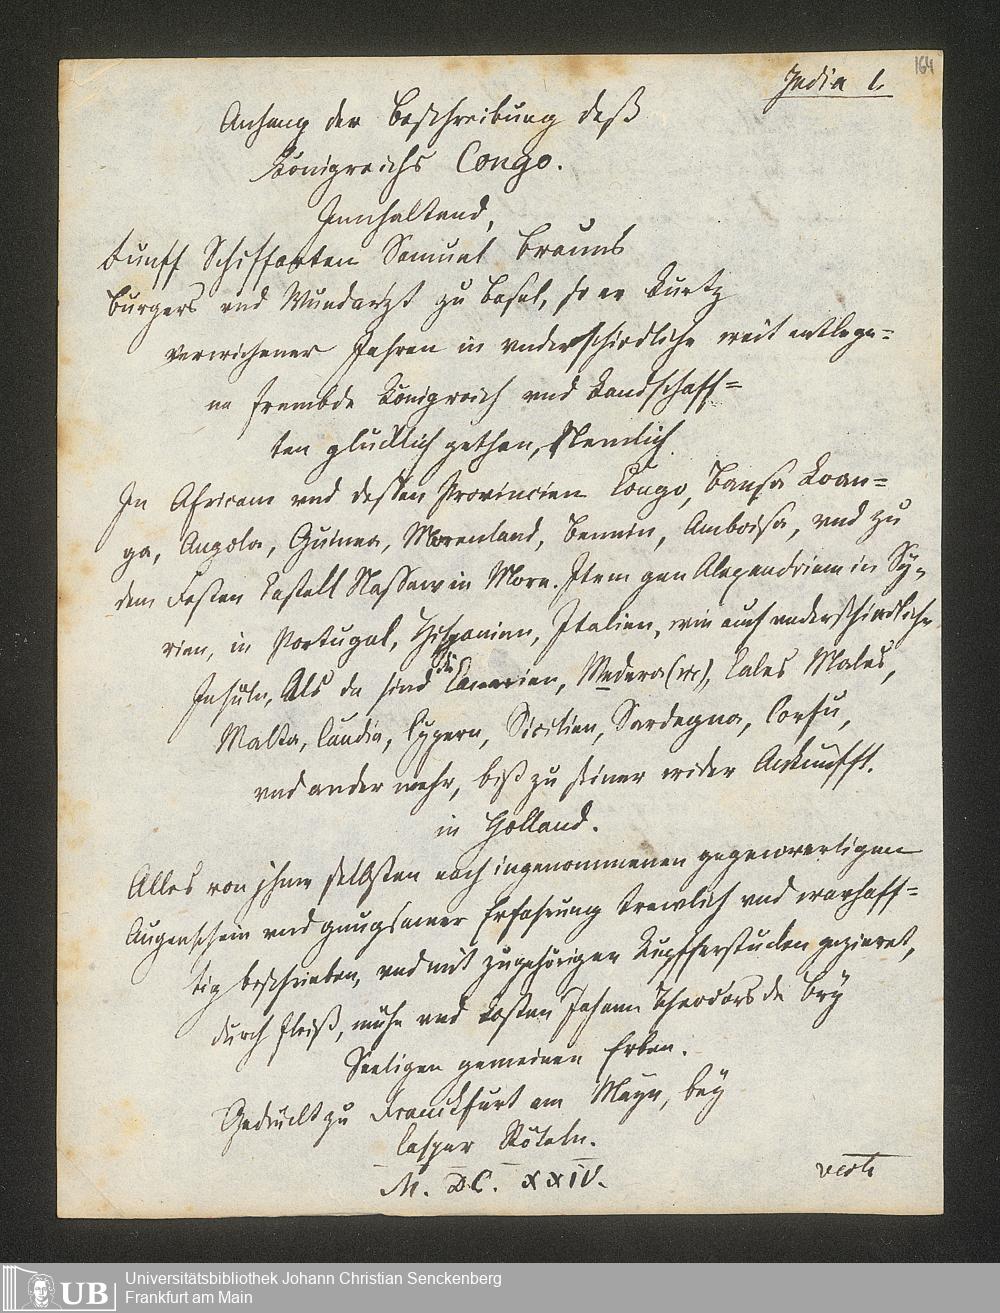 164
India 1.
Anhang der Beschreibung deß
Königreichs Congo.
Innhaltend,
Funff Schiffarten Samuel Brauns
Burgers vnd Wundartzt zu Basel, so er kurtz
verwichener Jahren in vnderschiedliche weit entlege=
ne frembde Königreich vnd Landschaff=
ten glücklich gethan, Nemlich
In Africam vnd dessen Provincien Congo, Bansa Loan=
ga, Angola, Guinea, Morenland, Bennin, Amboisa, vnd zu
dem Festen Castell Nassaw in More. Item gen Alexandriam in Sy=
rien, in Portugal, Hispanien, Italien, wie auch vnderschiedliche
Insuln, Als da sind die Canarien, Medera (sic), Cales Males,
Malta, Candia, Cypern, Sicilien, Sardegna, Corfu,
vnd ander mehr, biß zu seiner wider Ankunfft.
in Holland.
Alles von jhme selbsten nach ingenommenen gegenwertigen
Augenschein vnd gnugsamer Erfahrung trewlich vnd warhaff=
tig beschrieben, vnd mit zugehörigen Kupfferstucken gezieret,
durch fleiß, mühe vnd kosten Johann Theodors de Bry
Seeligen gemeinen Erben.
Gedruckt zu Franckfurt am Mayn, bey
Caspar Röteln.
M. DC. XXIV.
verte
UB
Universitätsbibliothek Johann Christian Senckenberg
Frankfurt am Main